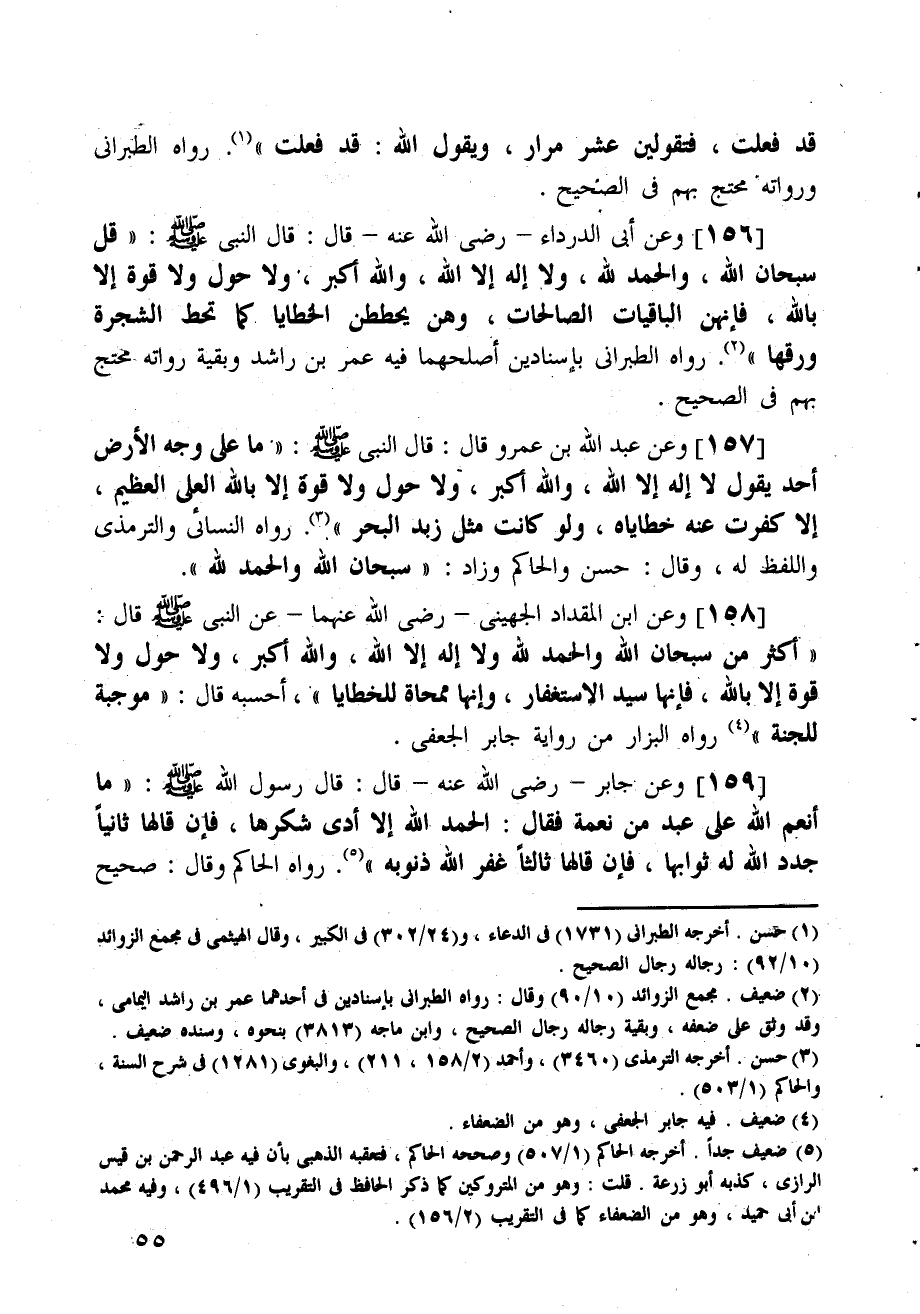 قد فعلت ، فتقولين عشر مرار ، ويقول الله : قد فعلت »(١). رواه الطبرانى
ورواته محتج بهم فى الصحيح .
[١٥٦] وعن أبى الدرداء – رضى الله عنه – قال : قال النبى ﷺ : « قل
سبحان الله ، والحمد لله ، ولا إله إلا الله ، والله أكبر ، ولا حول ولا قوة إلا
بالله ، فإنهن الباقيات الصالحات ، وهن يحططن الخطايا كما تحط الشجرة
ورقها »(٢). رواه الطبرانى بإسنادين أصلحهما فيه عمر بن راشد وبقية رواته محتج
بهم فى الصحيح .
[١٥٧] وعن عبد الله بن عمرو قال : قال النبى ﷺ : « ما على وجه الأرض
أحد يقول لا إله إلا الله ، والله أكبر ، ولا حول ولا قوة إلا بالله العلى العظيم ،
إلا كفرت عنه خطاياه ، ولو كانت مثل زبد البحر »(٣). رواه النسائى والترمذى
واللفظ له ، وقال : حسن والحاكم وزاد : « سبحان الله والحمد لله ».
[١٥٨] وعن ابن المقداد الجهينى – رضى الله عنهما – عن النبى ﷺ قال :
« أكثر من سبحان الله والحمد لله ولا إله إلا الله ، والله أكبر ، ولا حول ولا
قوة إلا بالله ، فإنها سيد الاستغفار ، وإنها ممحاة للخطايا » ، أحسبه قال : « موجبة
للجنة »(٤) رواه البزار من رواية جابر الجعفى .
[١٥٩] وعن جابر – رضى الله عنه – قال : قال رسول الله ﷺ : « ما
أنعم الله على عبد من نعمة فقال : الحمد الله إلا أدى شكرها ، فإن قالها ثانياً
جدد الله له ثوابها ، فإن قالها ثالثاً غفر الله ذنوبه »(٥). رواه الحاكم وقال : صحيح
(١) حسن . أخرجه الطبرانى (١٧٣١) فى الدعاء ، و(٣٠٢/٢٤) فى الكبير ، وقال الهيثمى فى مجمع الزوائد
(٩٢/١٠) : رجاله رجال الصحيح .
(٢) ضعيف . مجمع الزوائد (٩٠/١٠) وقال : رواه الطبرانى بإسنادين فى أحدهما عمر بن راشد اليمامى ،
وقد وثق على ضعفه ، وبقية رجاله رجال الصحيح ، وابن ماجه (٣٨١٣) بنحوه ، وسنده ضعيف .
(٣) حسن . أخرجه الترمذى (٣٤٦٠) ، وأحمد (١٥٨/٢ ، ٢١١) ، والبغوى (١٢٨١) فى شرح السنة ،
والحاكم (٥٠٣/١) .
(٤) ضعيف . فيه جابر الجعفى ، وهو من الضعفاء .
(٥) ضعيف جداً . أخرجه الحاكم (٥٠٧/١) وصححه الحاكم ، فتعقبه الذهبى بأن فيه عبد الرحمن بن قيس
الرازى ، كذبه أبو زرعة . قلت : وهو من المتروكين كما ذكر الحافظ فى التقريب (٤٩٦/١) ، وفيه محمد
ابن أبى حميد ، وهو من الضعفاء كما فى التقريب (١٥٦/٢) .
٥٥